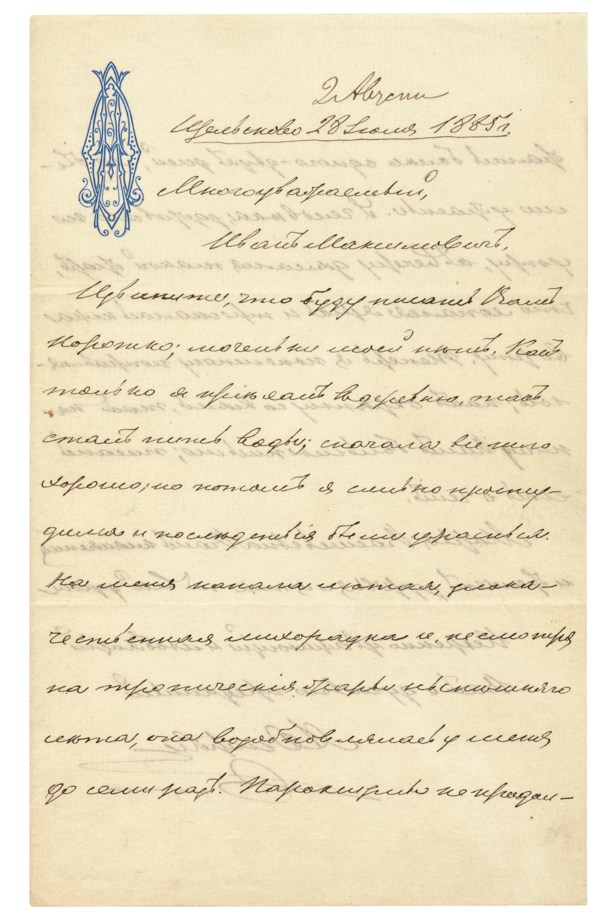 2 Августа
Щелыково 28 Iюля 1885 г.
Многоуважаемый,
Иванъ Максимовичъ,
Извините, что буду писать Вамъ
коротко; моченьки моей нѣтъ. Какъ
только я пріѣхалъ въ деревню, такъ
сталъ пить воды; сначала все шло
хорошо, но потомъ я сильно просту-
дился и послѣдствія были ужасныя.
На меня напала лютая, злока-
чественная лихорадка и, несмотря
на тропическія жары нынѣшняго
лѣта, она возобновлялась у меня
до семи разъ. Пароксизмы не продол-